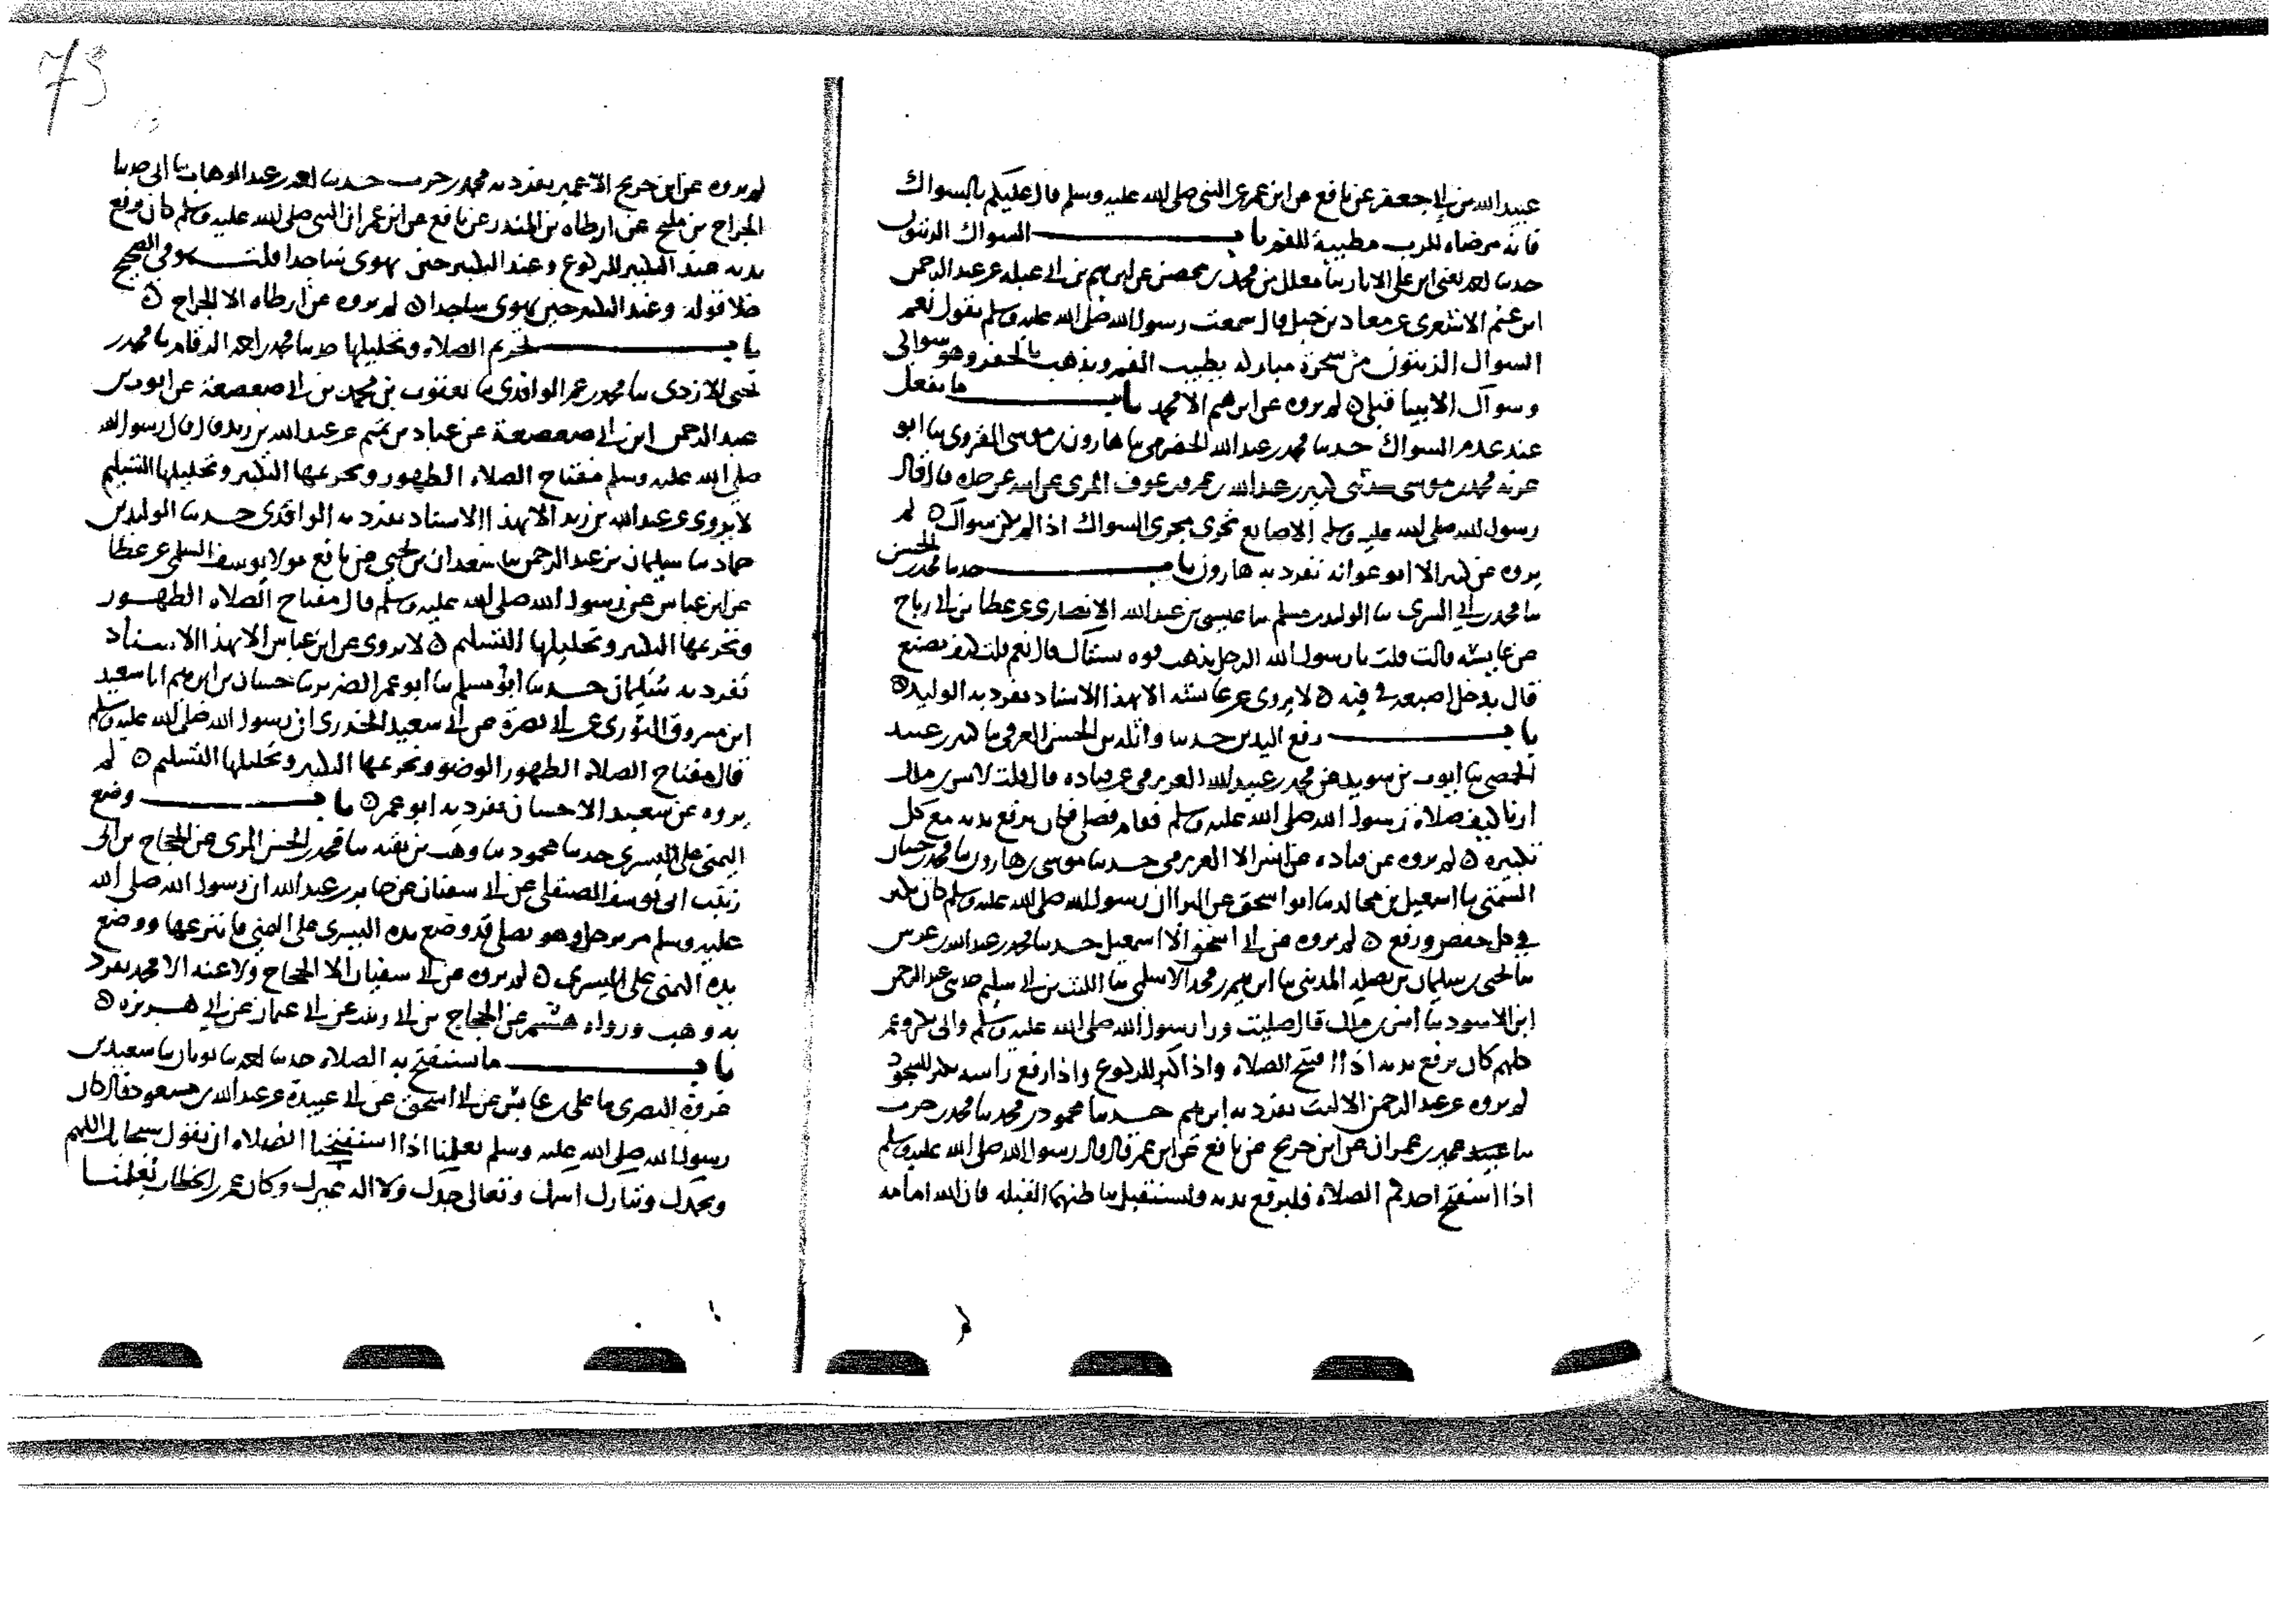 عبيد الله بن أبي جعفر عن نافع عن ابن عمر عن النبي صلى الله عليه وسلم قال عليكم بالسواك
فانه مرضاه للرب مطيبة للفم باب السواك الزيتون
حدثنا احمد يعني ابن علي الابار ثنا معلل بن محمد بن محصن عن ابرهيم بن ابي عبله عن عبد الرحمن
ابن غنم الاشعري عن معاذ بن جبل قال سمعت رسول الله صلى الله عليه وسلم يقول نعم
السواك الزيتون من شجرة مباركه يطيب الفم ويذهب بالحفر وهو سواكي
وسواك الانبيا قبلي لم يروه عن ابرهيم الا محمد باب ما يفعل
عند عدم السواك حدثنا محمد بن عبد الله الحضرمي ثنا هارون بن موسى الفروي ثنا ابو
غزيه محمد بن موسى حدثني كثير بن عبد الله بن عمرو بن عوف المزني عن ابيه عن جده قال قال
رسول الله صلى الله عليه وسلم الاصابع تجري مجرى السواك اذا لم يكن سواك لم
يروه عن كثير الا ابو غزيه تفرد به هارون باب حدثنا محمد بن الحسن
ثنا محمد بن ابي السري ثنا الوليد بن مسلم ثنا عيسى بن عبد الله الانصاري عن عطا بن ابي رباح
عن عايشه قالت قلت يا رسول الله الرجل يذهب فوه يستاك قال نعم قلت كيف يصنع
قال يدخل اصبعه في فيه لا يروى عن عايشه الا بهذا الاسناد تفرد به الوليد
باب رفع اليدين حدثنا واثله بن الحسن العرقي ثنا كثير بن عبيد
الحمصي ثنا ايوب بن سويد عن محمد بن عبيد الله العرزمي عن قتاده قال قلت لانس بن مالك
ارنا كيف صلاة رسول الله صلى الله عليه وسلم فقام فصلى فكان يرفع يديه مع كل
تكبيره لم يروه عن قتاده عن انس الا العرزمي حدثنا موسى بن هارون ثنا محمد بن حسان
السمتي ثنا اسمعيل بن مجالد ثنا ابو اسحق عن البرا ان رسول الله صلى الله عليه وسلم كان يكبر
في كل خفض ورفع لم يروه عن ابي اسحق الا اسمعيل حدثنا محمد بن عبد الله بن عرس
ثنا يحيى بن سليمان بن نضله المديني ثنا ابرهيم بن محمد الاسلمي ثنا الليث بن ابي سليم حدثني عبد الرحمن
ابن الاسود ثنا انس بن مالك قال صليت ورا رسول الله صلى الله عليه وسلم وابي بكر وعمر
كلهم كان يرفع يديه اذا افتتح الصلاه واذا كبر للركوع واذا رفع راسه يكبر للسجود
لم يروه عن عبد الرحمن الا ليث تفرد به ابرهيم حدثنا محمود بن محمد ثنا محمد بن حرب
ثنا عمير بن عمران عن ابن جريج عن نافع عن ابن عمر قال قال رسول الله صلى الله عليه وسلم
اذا استفتح احدكم الصلاه فليرفع يديه وليستقبل بباطنهما القبله فان الله امامه
لم يروه عن ابن جريج الا عمير تفرد به محمد بن حرب حدثنا احمد بن عبد الوهاب ثنا ابي حدثنا
الجراح بن مليح عن ارطاه بن المنذر عن نافع عن ابن عمر ان النبي صلى الله عليه وسلم كان يرفع
يديه عند التكبير للركوع وعند التكبير حتى يهوي ساجدا قلت هو في الصحيح
خلا قوله وعند التكبير حين يهوي ساجدا لم يروه عن ارطاه الا الجراح
باب تحريم الصلاه وتحليلها حدثنا محمد بن احمد الرقام ثنا محمد بن
يحيى الازدي ثنا محمد بن عمر الواقدي ثنا يعقوب بن محمد بن ابي صعصعة عن ايوب بن
عبد الرحمن ابن ابي صعصعة عن عباد بن تميم عن عبد الله بن زيد قال قال رسول الله
صلى الله عليه وسلم مفتاح الصلاه الطهور وتحريمها التكبير وتحليلها التسليم
لا يروى عن عبد الله بن زيد الا بهذا الاسناد تفرد به الواقدي حدثنا الوليد بن
حماد ثنا سليمان بن عبد الرحمن ثنا سعدان بن يحيى عن نافع مولى يوسف السلمي عن عطا
عن ابن عباس عن رسول الله صلى الله عليه وسلم قال مفتاح الصلاه الطهور
وتحريمها التكبير وتحليلها التسليم لا يروى عن ابن عباس الا بهذا الاسناد
تفرد به سليمان حدثنا ابو مسلم ثنا ابو عمر الضرير ثنا حسان بن ابرهيم انا سعيد
ابن مسروق الثوري عن ابي نضرة عن ابي سعيد الخدري ان رسول الله صلى الله عليه وسلم
قال مفتاح الصلاه الطهور الوضو وتحريمها التكبير وتحليلها التسليم لم
يروه عن سعيد الا حسان تفرد به ابو عمر باب وضع
اليمنى على اليسرى حدثنا محمود ثنا وهب بن بقيه ثنا محمد بن الحسن المزني عن الحجاج بن ابي
زينب ابي يوسف الصيقلي عن ابي سفيان عن جابر بن عبد الله ان رسول الله صلى الله
عليه وسلم مر برجل وهو يصلي قد وضع يده اليسرى على اليمنى فانتزعها ووضع
يده اليمنى على اليسرى لم يروه عن ابي سفيان الا الحجاج ولا عنه الا محمد تفرد
به وهب ورواه هشيم عن الحجاج بن ابي زينب عن ابي عثمان عن ابي هريره
باب ما يستفتح به الصلاه حدثنا احمد ثنا ثوبان ثنا سعيد بن
عروة البصري ثنا علي بن عابس عن ابي اسحق عن ابي عبيدة عن عبد الله بن مسعود قال كان
رسول الله صلى الله عليه وسلم يعلمنا اذا استفتحنا الصلاه ان نقول سبحانك اللهم
وبحمدك وتبارك اسمك وتعالى جدك ولا اله غيرك وكان عمر بن الخطاب يعلمنا